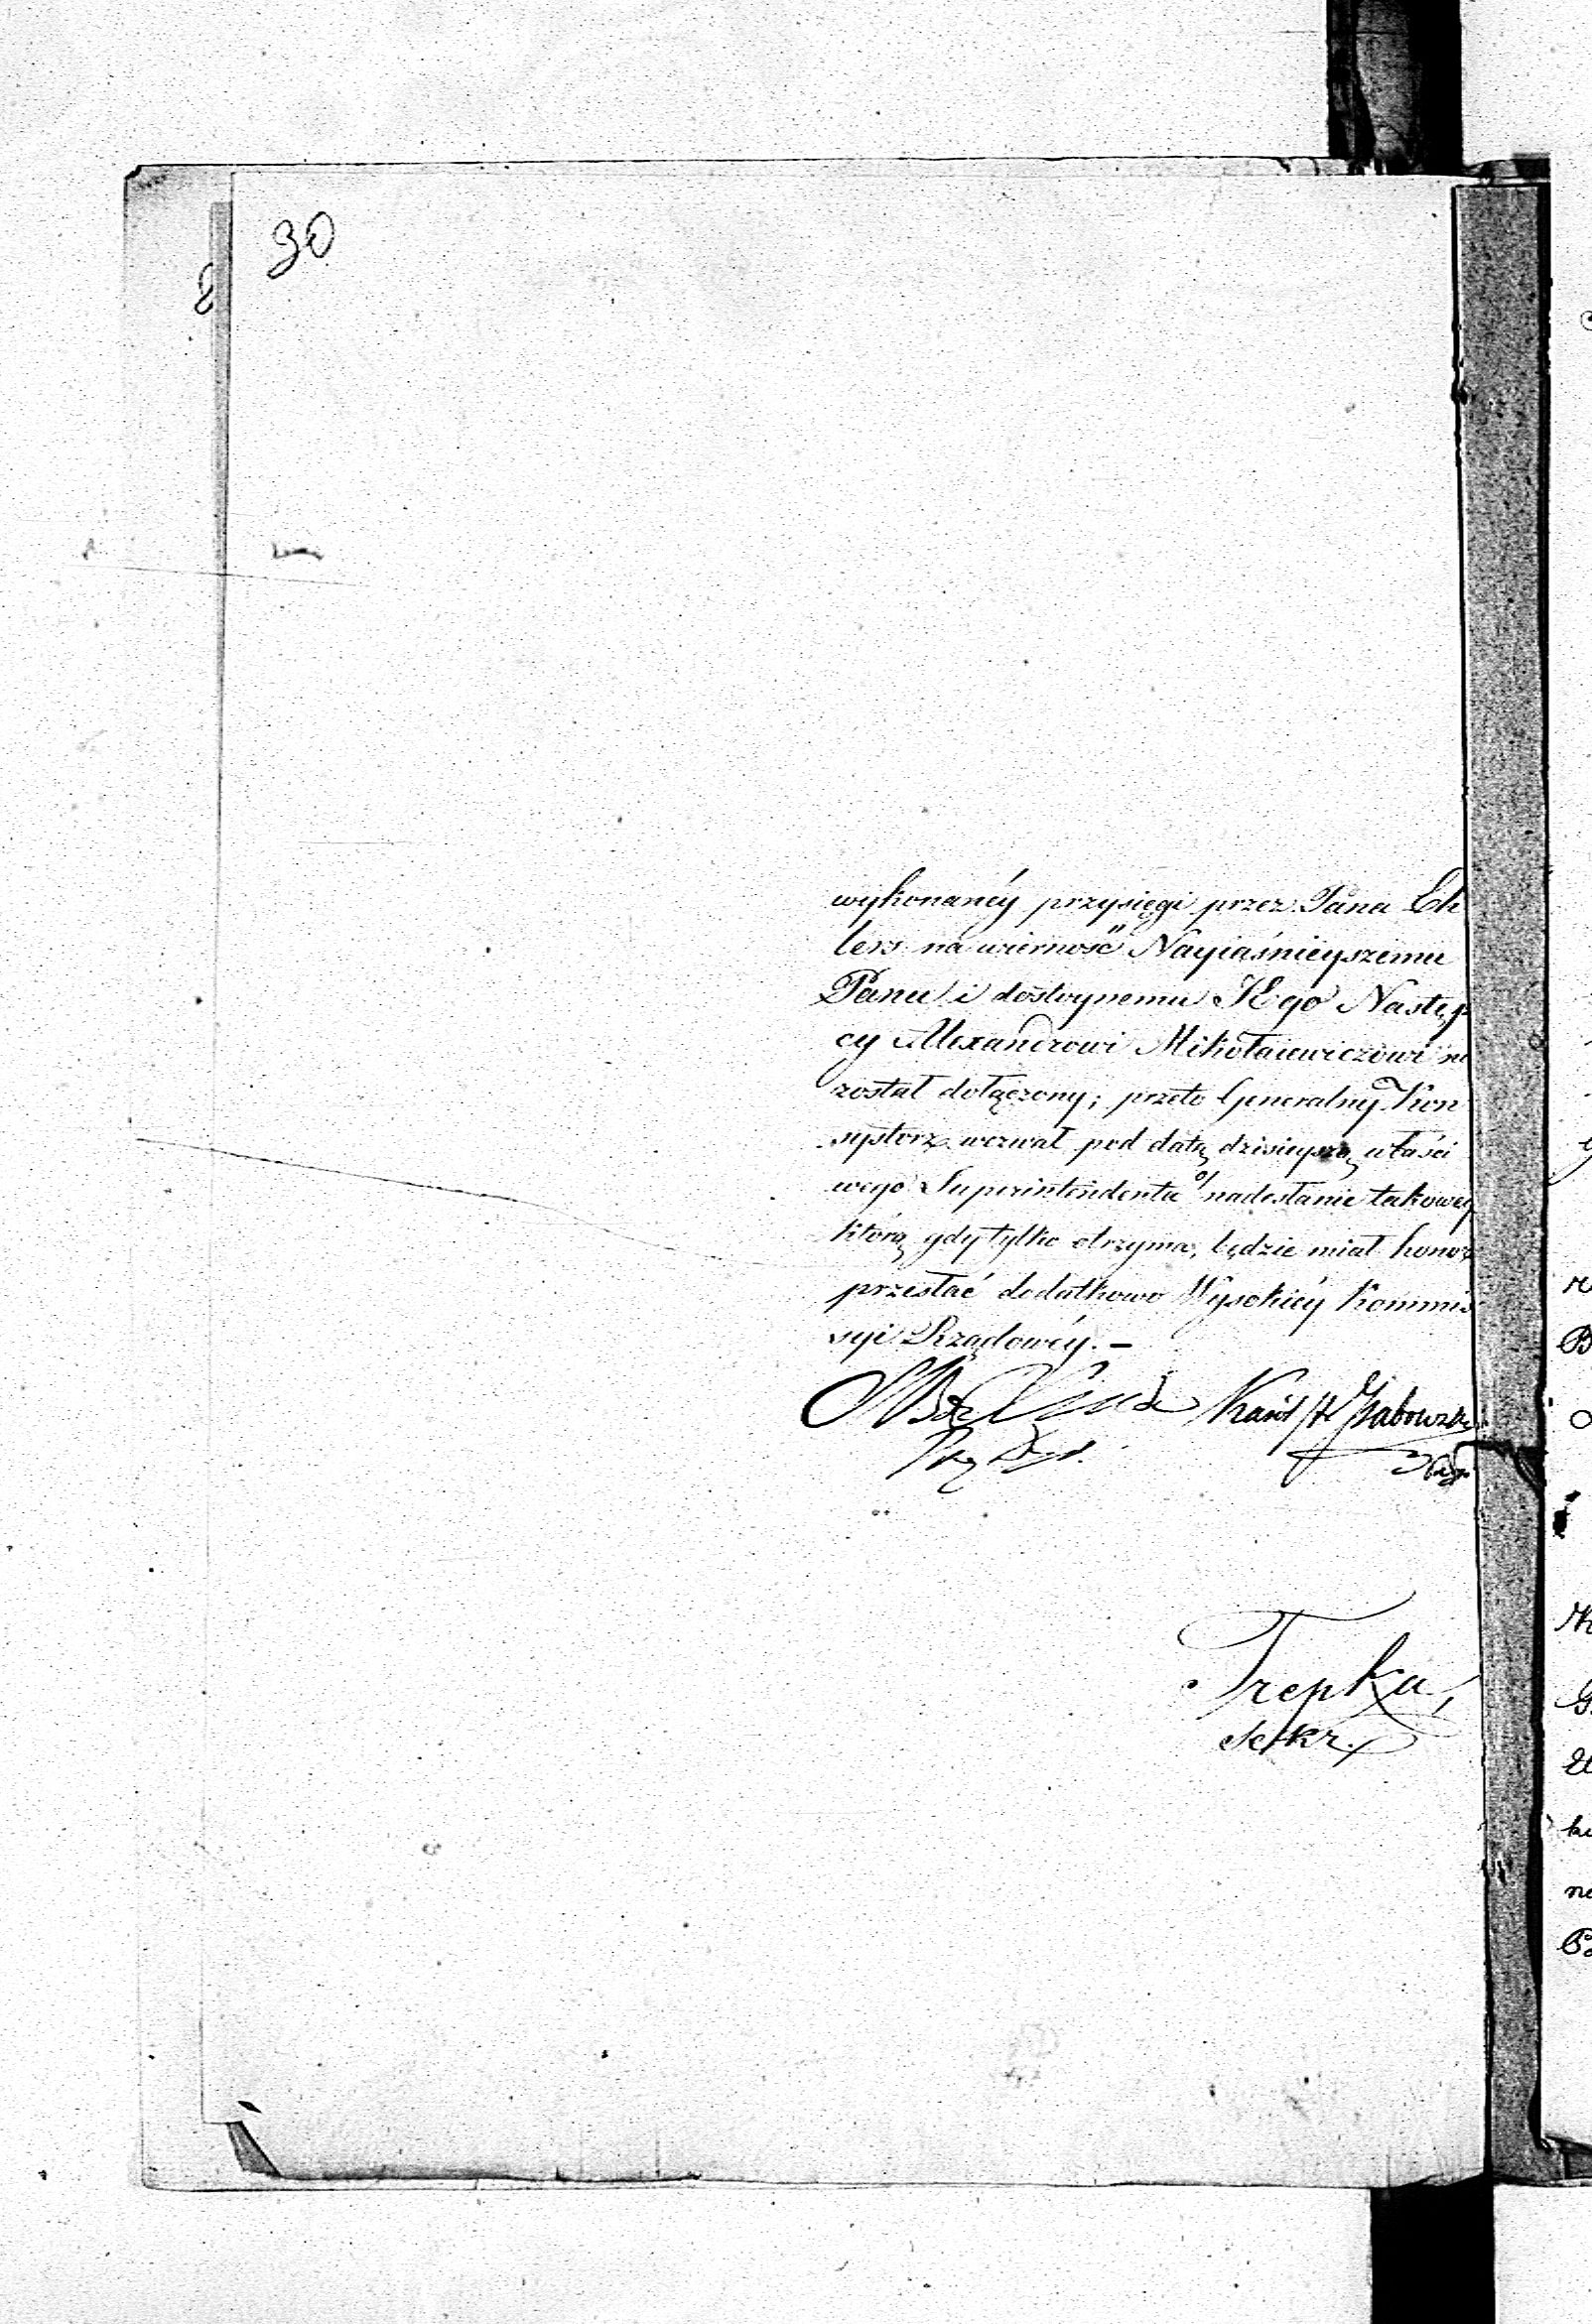 30
wykonanéy przysięgi przez Pana Eh
lers na wierność Nayiaśnieyszemu
Panu i dostoynemu JEgo Następ
cy Alexandrowi Mikołaiewiczowi
został dołączony; przeto Generalny Kon
systorz wezwał pod datą dzisieyszą właści
wego Superintendenta o nadesłanie takowey
którą gdy tylko otrzyma, będzie miał honor
przesłać dodatkowo Wysokiéy Kommis
syi Rządowéy. —
Trepka,
Sekr.